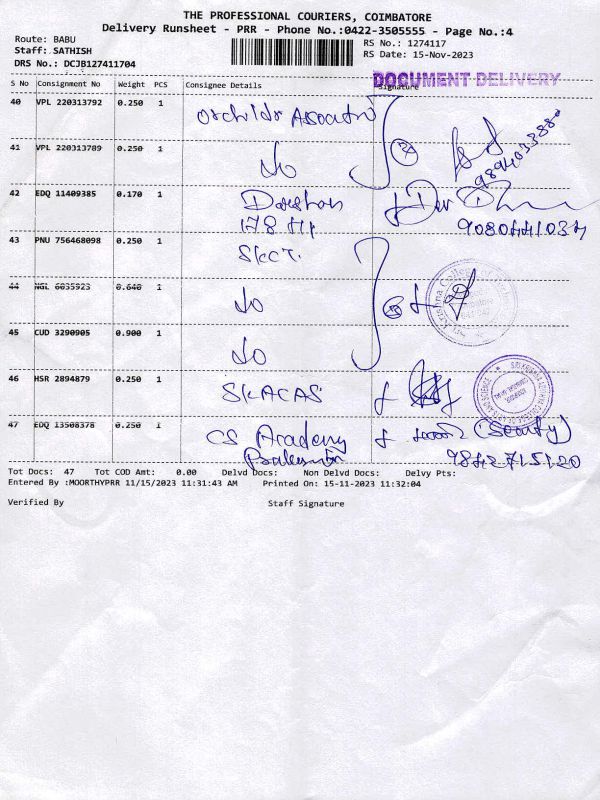 THE PROFESSIONAL COURIERS, COIMBATORE
Delivery Runsheet - PRR - Phone No.:0422-3505555 - Page No.:4
Route: BABU
Staff: SATHISH
DRS No.: DCJB127411704
RS No.: 1274117
RS Date: 15-Nov-2023
DOCUMENT DELIVERY
S No Consignment No Weight PCS Consignee Details Signature
40 VPL 220313792 0.250 1 Orchids
41 VPL 220313789 0.250 1 do
42 EDQ 11409385 0.170 1 Darshan
178 9080441034
43 PNU 756468098 0.250 1 SKCT.
44 NGL 6035923 0.640 1 do
45 CUD 3290905 0.900 1 do
46 HSR 2894879 0.250 1 SKACAS
47 EDQ 13508378 0.250 1 CS Academy (Security)
9842715120
Tot Docs: 47 Tot COD Amt: 0.00 Delvd Docs: Non Delvd Docs: Delvy Pts:
Entered By :MOORTHYPRR 11/15/2023 11:31:43 AM Printed On: 15-11-2023 11:32:04
Verified By Staff Signature